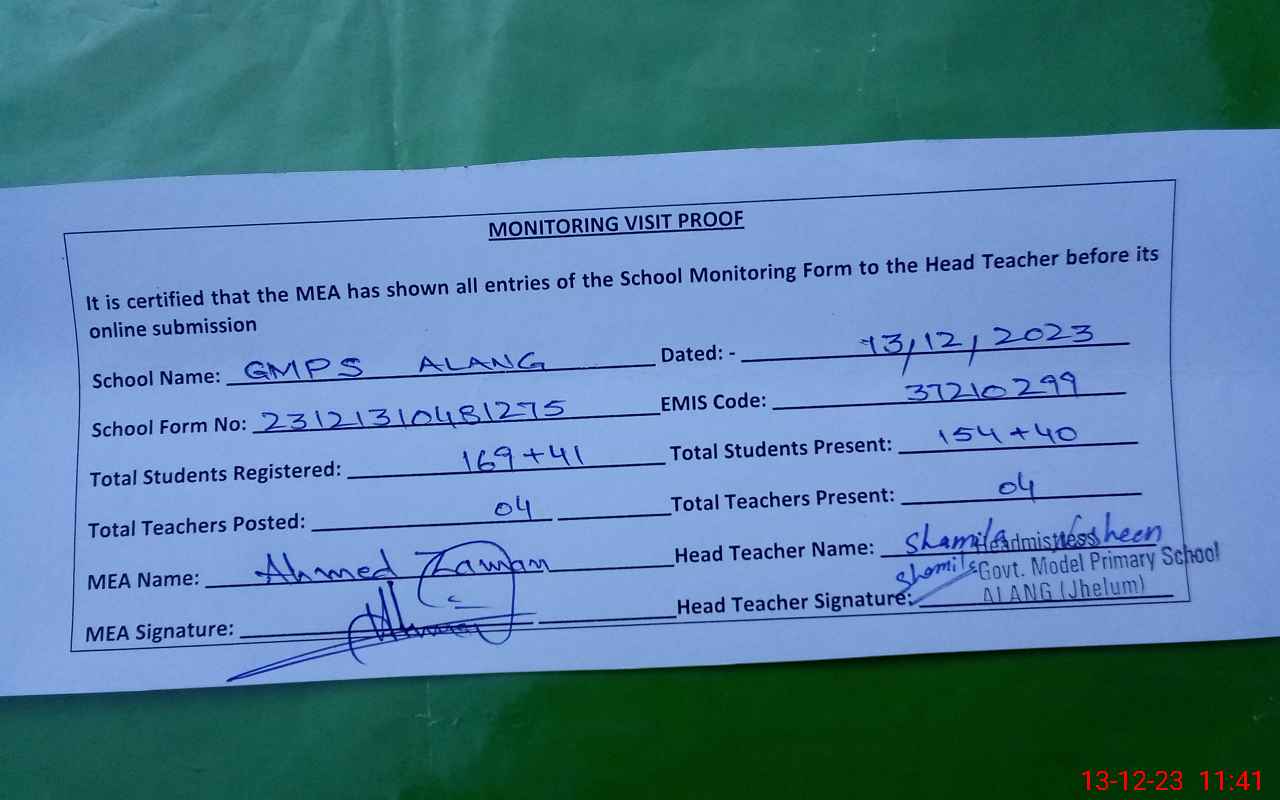 MONITORING VISIT PROOF
It is certified that the MEA has shown all entries of the School Monitoring Form to the Head Teacher before its
online submission
School Name: GMPS ALANG Dated: - 13,12,2023
School Form No: 23121310481275 EMIS Code: 37210299
Total Students Registered: 169+41 Total Students Present: 154+40
Total Teachers Posted: 04 Total Teachers Present: 04
MEA Name: Ahmed Zaman Head Teacher Name: Shamila Nosheen
Headmistress
MEA Signature: Head Teacher Signature: Shamila
Govt. Model Primary School
ALANG (Jhelum)
13-12-23 11:41